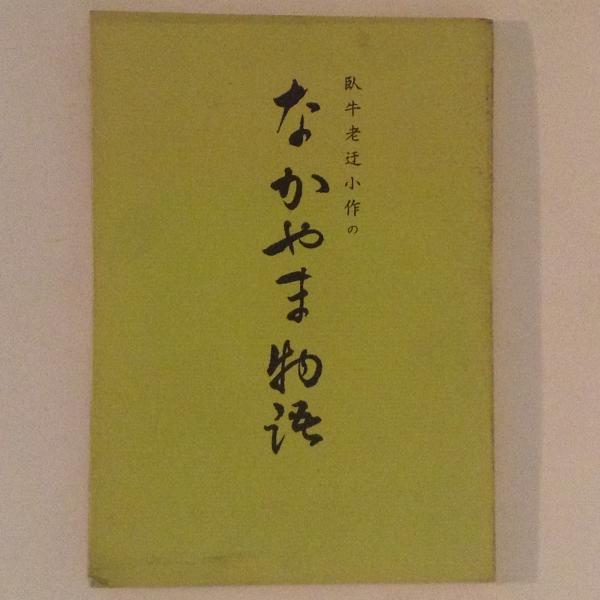 臥牛老迂小作の
なかやま物語